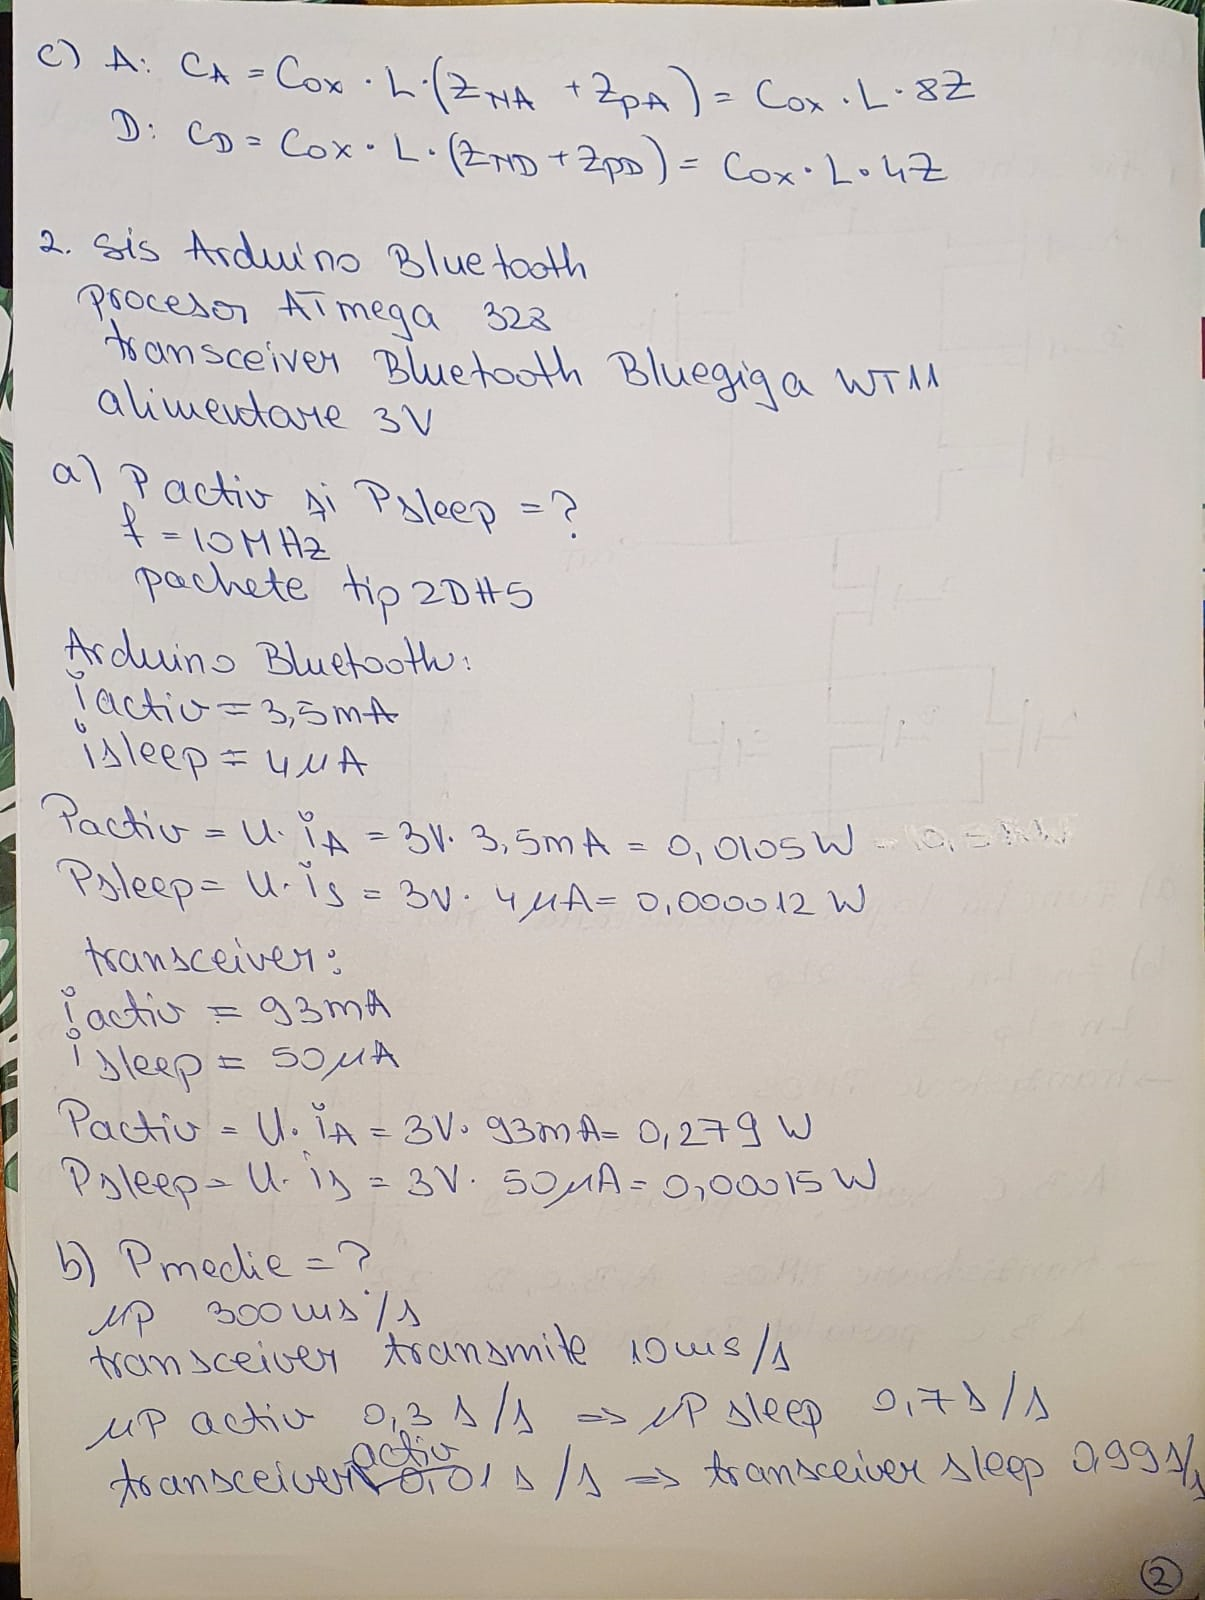 c) A: CA = Cox · L · (ZNA + ZPA) = Cox · L · 8Z
D: CD = Cox · L · (ZND + ZPD) = Cox · L · 4Z
2. sis Arduino Bluetooth
procesor ATmega 328
transceiver Bluetooth Bluegiga WT11
alimentare 3V
a) Pactiv și Psleep = ?
f = 10MHz
pachete tip 2DH5
Arduino Bluetooth:
iactiv = 3,5mA
isleep = 4μA
Pactiv = U · iA = 3V · 3,5mA = 0,0105W
Psleep = U · is = 3V · 4μA = 0,000012 W
transceiver:
iactiv = 93mA
isleep = 50μA
Pactiv = U · iA = 3V · 93mA = 0,279 W
Psleep = U · is = 3V · 50μA = 0,00015 W
b) Pmedie = ?
μP 300ms/s
transceiver transmite 10ms/s
μP activ 0,3 s/s => μP sleep 0,7s/s
transceiver activ 0,01 s/s => transceiver sleep 0,99s/s
2